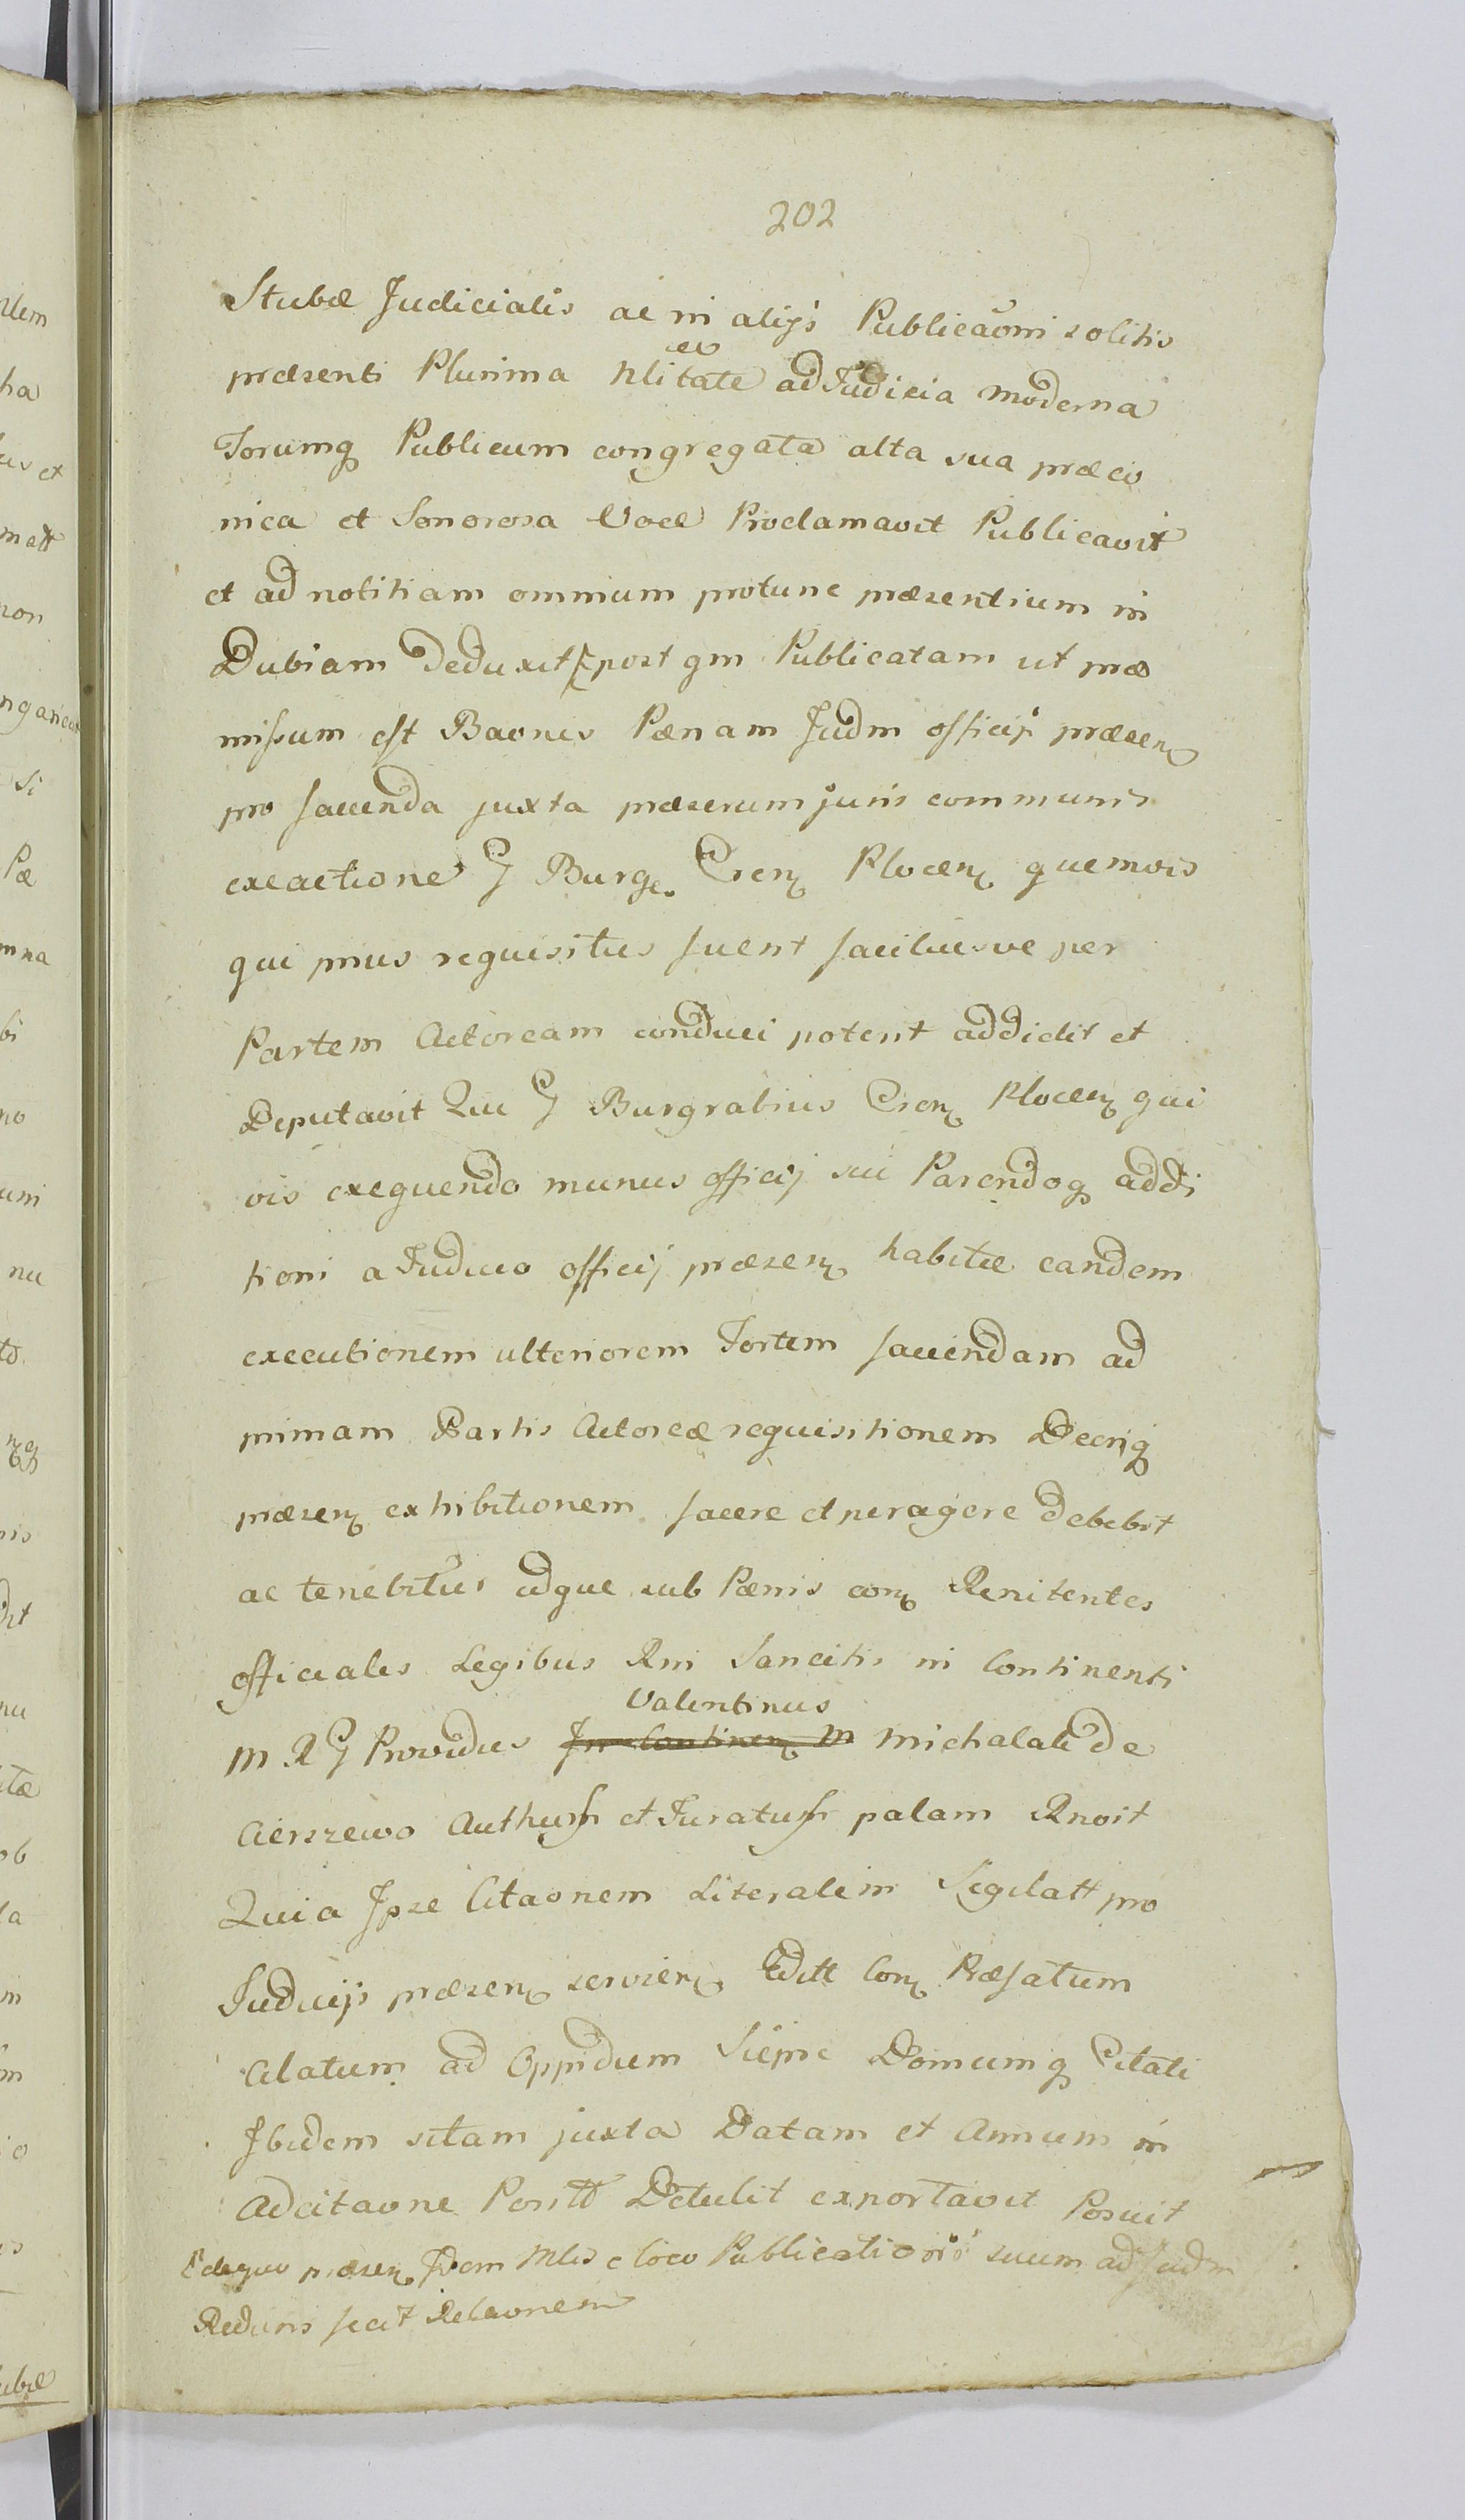 202
Stubæ Judicialis ac in alijs Publicaoni solitis
præsenti Plurima Nlitate ad Judicia moderna
Forumq Publicum congregata alta sua præco
nica et Sonorosa Voce Proclamavit Publicavit
et ad notitiam omnium protunc præsentium in
Dubiam Deduxit post qm Publicatam ut præ
missum est Baonis Pænam Judm officij præsen
pro facienda juxta præscrum juris communis
exeactione G Burg Cren Plocen quemvis
qui prius requisitus fuerit faciliusve per
Partem Actoream conduci poterit addidit et
Deputavit Qui G Burgrabius Cren Plocen qui
vis exequendo munus officij sui Parendoq addi
tioni a Judicio officij præsen habitæ eandem
executionem ulteriorem Fortem faciendam ad
primam Partis Actoreæ requisitionem Decriq
præsen exhibitionem facere et peragere debebit
ac tenebitur idque sub Pænis con Renitentes
officiales Legibus Rni Sancitis in Continenti
Valentinus
M R G Providus In Continen M Michalak de
Cierszewo Authus et Juratus palam Rnoit
Quia Ipse Citaonem Literalem Sigilatt pro
Judicijs præsen servien Editt Con Præfatum
Citatum ad Oppidum Siepre Domumq Citati
Ibidem sitam juxta Datam et Annum in
Adcitaone Positt Detulit exportavit Posuit
præsen Idem Mlis e loco Publicationis suum ad Judm
Rediens fecit Relaonem